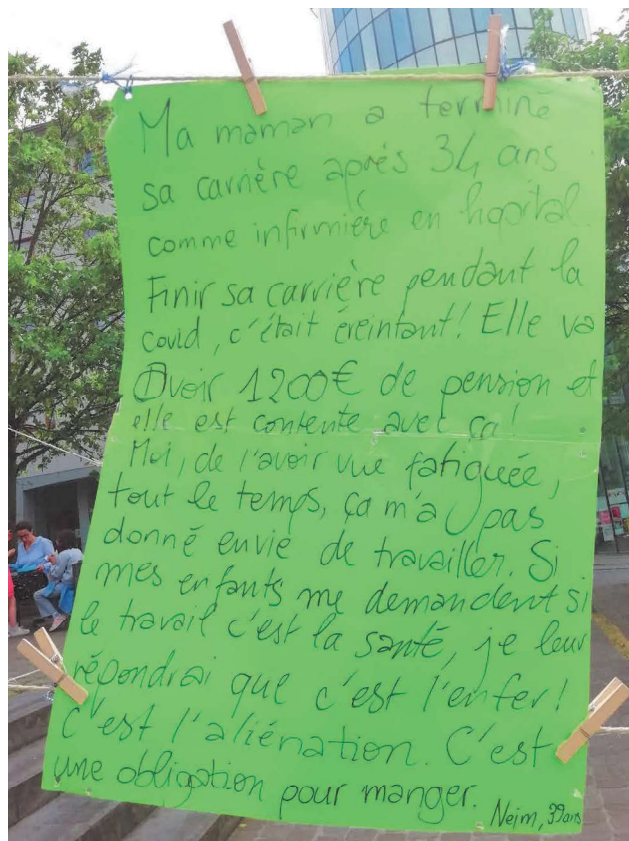 Ma maman a terminé
sa carrière après 34 ans
comme infirmière en hopital.
Finir sa carrière pendant la
covid, c'était éreintant! Elle va
Avoir 1200€ de pension et
elle est contente avec ça!
Moi, de l'avoir vue fatiguée,
tout le temps, ça m'a pas
donné envie de travailler. Si
mes enfants me demandent si
le travail c'est la santé, je leur
répondrai que c'est l'enfer!
C'est l'aliénation. C'est
une obligation pour manger.
Nejm, 39ans